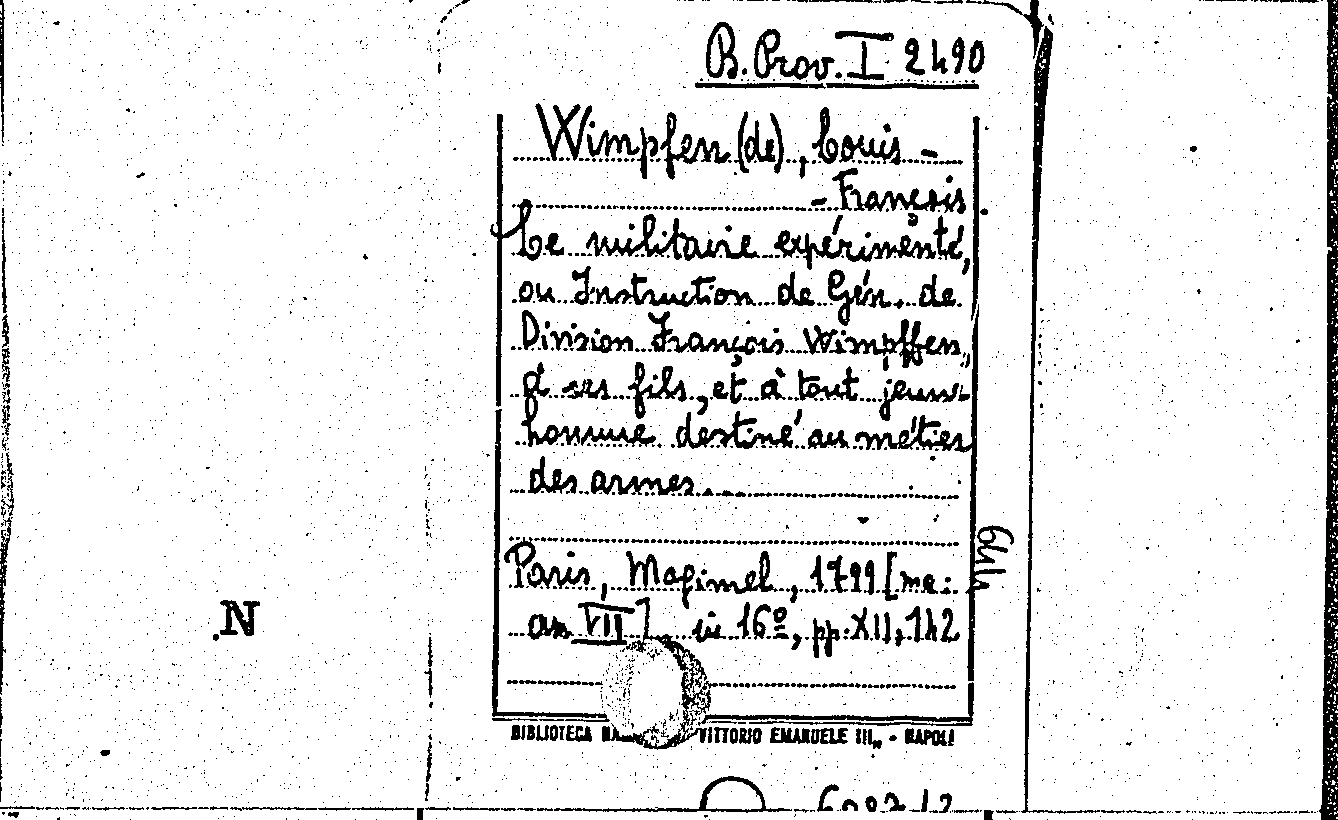 B. Prov. I 2490
Wimpfen (de), Louis -
- François.
Le militaire expérimenté,
ou Instruction de Gén. de
Division François Wimpffen,
à ses fils, et à tout jeune
homme destiné au métier
des armes...
Paris, Magimel, 1799 [ma:
an VII], in 16º, pp. XII, 142
.N
BIBLIOTECA VITTORIO EMANUELE III„ - NAPOLI